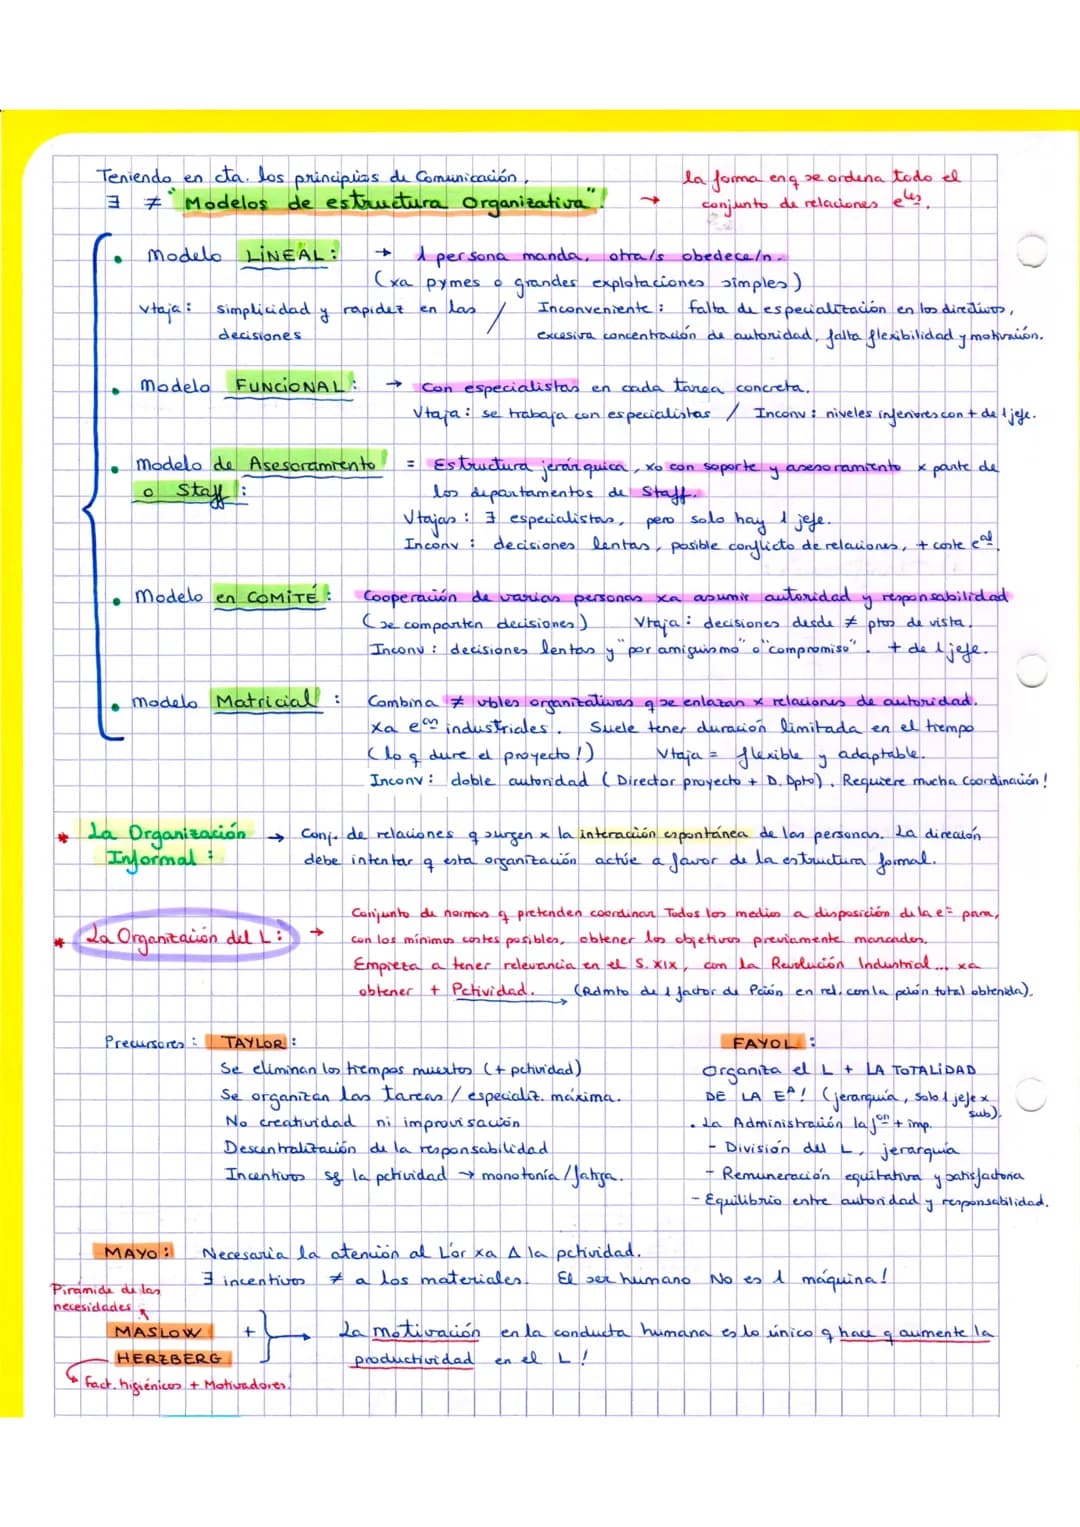 Teniendo en cta. los principios de Comunicación,
∃ ≠ "Modelos de estructura Organizativa".
→ la forma en q se ordena todo el
conjunto de relaciones e^les.
• Modelo LINEAL: → 1 persona manda, otra/s obedece/n.
(xa pymes o grandes explotaciones simples)
Vtaja: simplicidad y rapidez en las / Inconveniente: falta de especialización en los directivos,
decisiones excesiva concentración de autoridad, falta flexibilidad y motivación.
• Modelo FUNCIONAL: → con especialistas en cada tarea concreta.
Vtaja: se trabaja con especialistas / Inconv: niveles inferiores con + de 1 jefe.
• Modelo de Asesoramiento = Estructura jerárquica, xo con soporte y asesoramiento x parte de
o Staff: los departamentos de Staff.
Vtajas: ∃ especialistas, pero solo hay 1 jefe.
Inconv: decisiones lentas, posible conflicto de relaciones, + coste e^al.
• Modelo en COMITÉ: Cooperación de varias personas xa asumir autoridad y responsabilidad
(se comparten decisiones) Vtaja: decisiones desde ≠ ptos de vista.
Inconv: decisiones lentas y "por amiguismo" o "compromiso". + de 1 jefe.
• Modelo Matricial: Combina ≠ vbles organizativas q se enlazan x relaciones de autoridad.
xa e^as industriales. Suele tener duración limitada en el tiempo
(lo q dure el proyecto!) Vtaja = flexible y adaptable.
Inconv: doble autoridad (Director proyecto + D. Dpto). Requiere mucha coordinación!
* La Organización → Conj. de relaciones q surgen x la interacción espontánea de las personas. La dirección
Informal: debe intentar q esta organización actúe a favor de la estructura formal.
* La Organización del L: → Conjunto de normas q pretenden coordinar Todos los medios a disposición de la e^a para,
con los mínimos costes posibles, obtener los objetivos previamente marcados.
Empieza a tener relevancia en el S. XIX, con la Revolución Industrial... xa
obtener + Pctividad. → (Rdmto de 1 factor de Pción en rel. con la pción total obtenida).
Precursores: TAYLOR:
Se eliminan los tiempos muertos (+ pctividad)
Se organizan las tareas / especializ. máxima.
No creatividad ni improvisación
Descentralización de la responsabilidad
Incentivos sg la pctividad → monotonía / fatiga.
FAYOL:
Organiza el L + LA TOTALIDAD
DE LA E^A! (jerarquía, solo 1 jefe x
sub).
• La Administración la f^on + imp.
- División del L, jerarquía
- Remuneración equitativa y satisfactoria
- Equilibrio entre autoridad y responsabilidad.
MAYO: Necesaria la atención al L'or xa Δ la pctividad.
∃ incentivos ≠ a los materiales. El ser humano No es 1 máquina!
Pirámide de las
necesidades
MASLOW + → La motivación en la conducta humana es lo único q hace q aumente la
HERZBERG productividad en el L!
Fact. higiénicos + Motivadores.